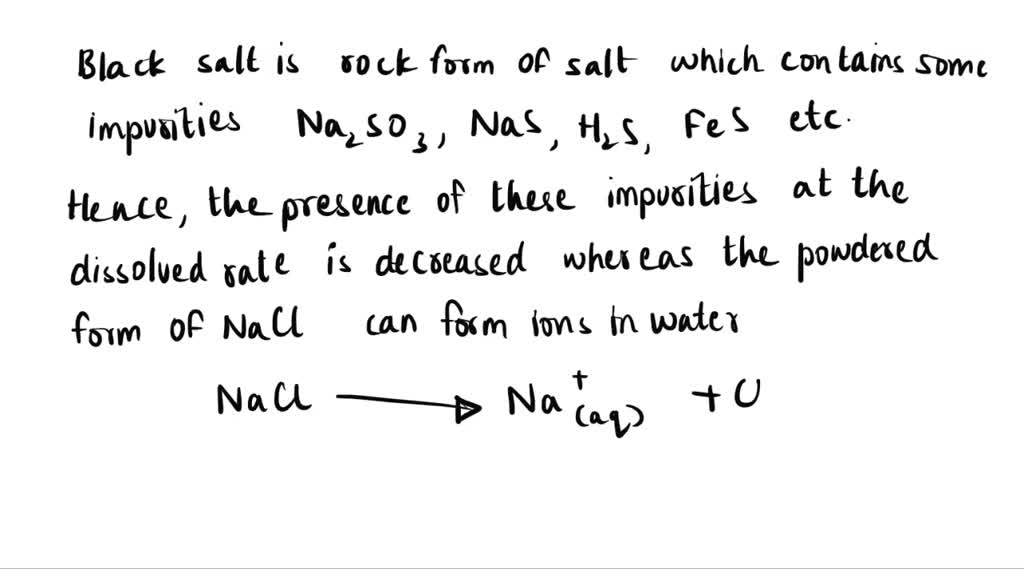 Black salt is rock form of salt which contains some
impurities Na₂SO₃, NaS, H₂S, FeS etc.
Hence, the presence of these impurities at the
dissolved rate is decreased whereas the powdered
form of NaCl can form ions in water
NaCl → Na⁺(aq) + U